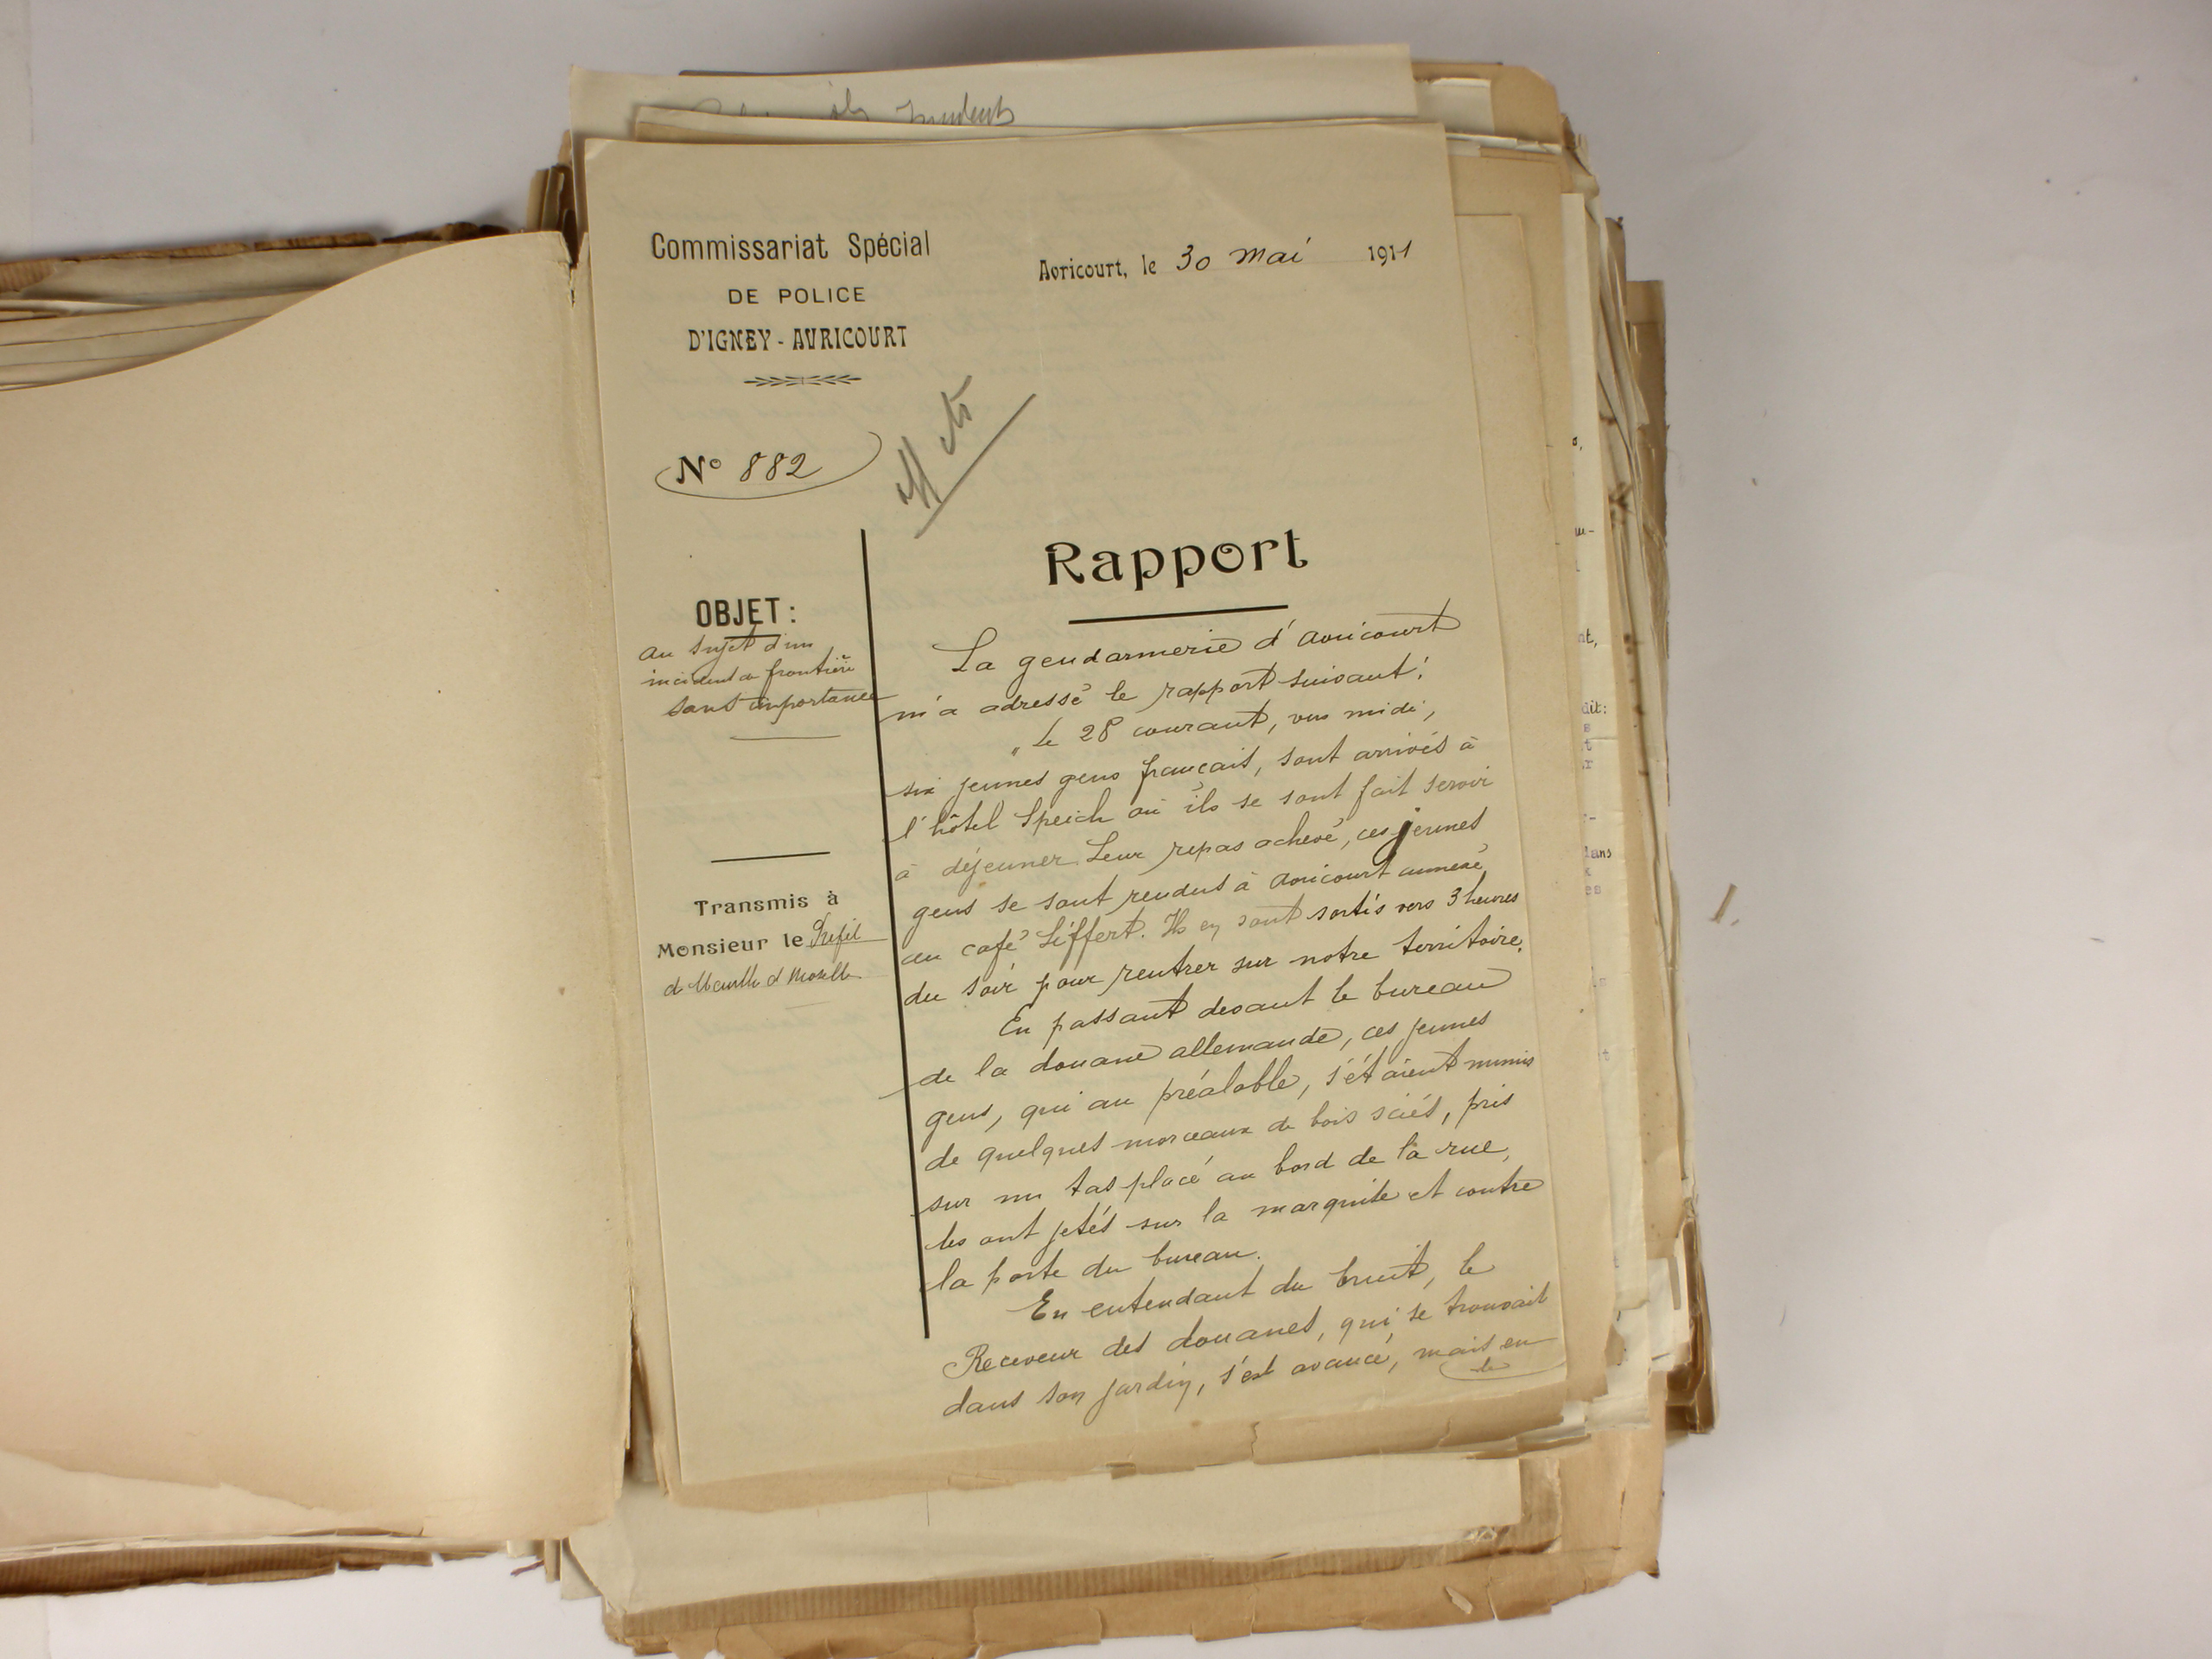 Commissariat Spécial
DE POLICE
D'IGNEY - AVRICOURT
Avricourt, le 30 Mai 1911
N° 882
Rapport
OBJET :
au sujet d'un
incident de frontière
sans importance
Transmis à
Monsieur le Préfet
de Meurthe et Moselle
La gendarmerie d'Avricourt
m'a adressé le rapport suivant :
" Le 28 courant, vers midi,
six jeunes gens français, sont arrivés à
l'hôtel Speich où ils se sont fait servir
à déjeuner. Leur repas achevé, ces jeunes
gens se sont rendus à Avricourt annexé
au café Siffert. Ils en sont sortis vers 3 heures
du soir pour rentrer sur notre territoire.
En passant devant le bureau
de la douane allemande, ces jeunes
gens, qui au préalable, s'étaient munis
de quelques morceaux de bois sciés, pris
sur un tas placé au bord de la rue,
les ont jetés sur la marquise et contre
la porte du bureau.
En entendant du bruit, le
Receveur des douanes, qui se trouvait
dans son jardin, s'est avancé, mais en
le